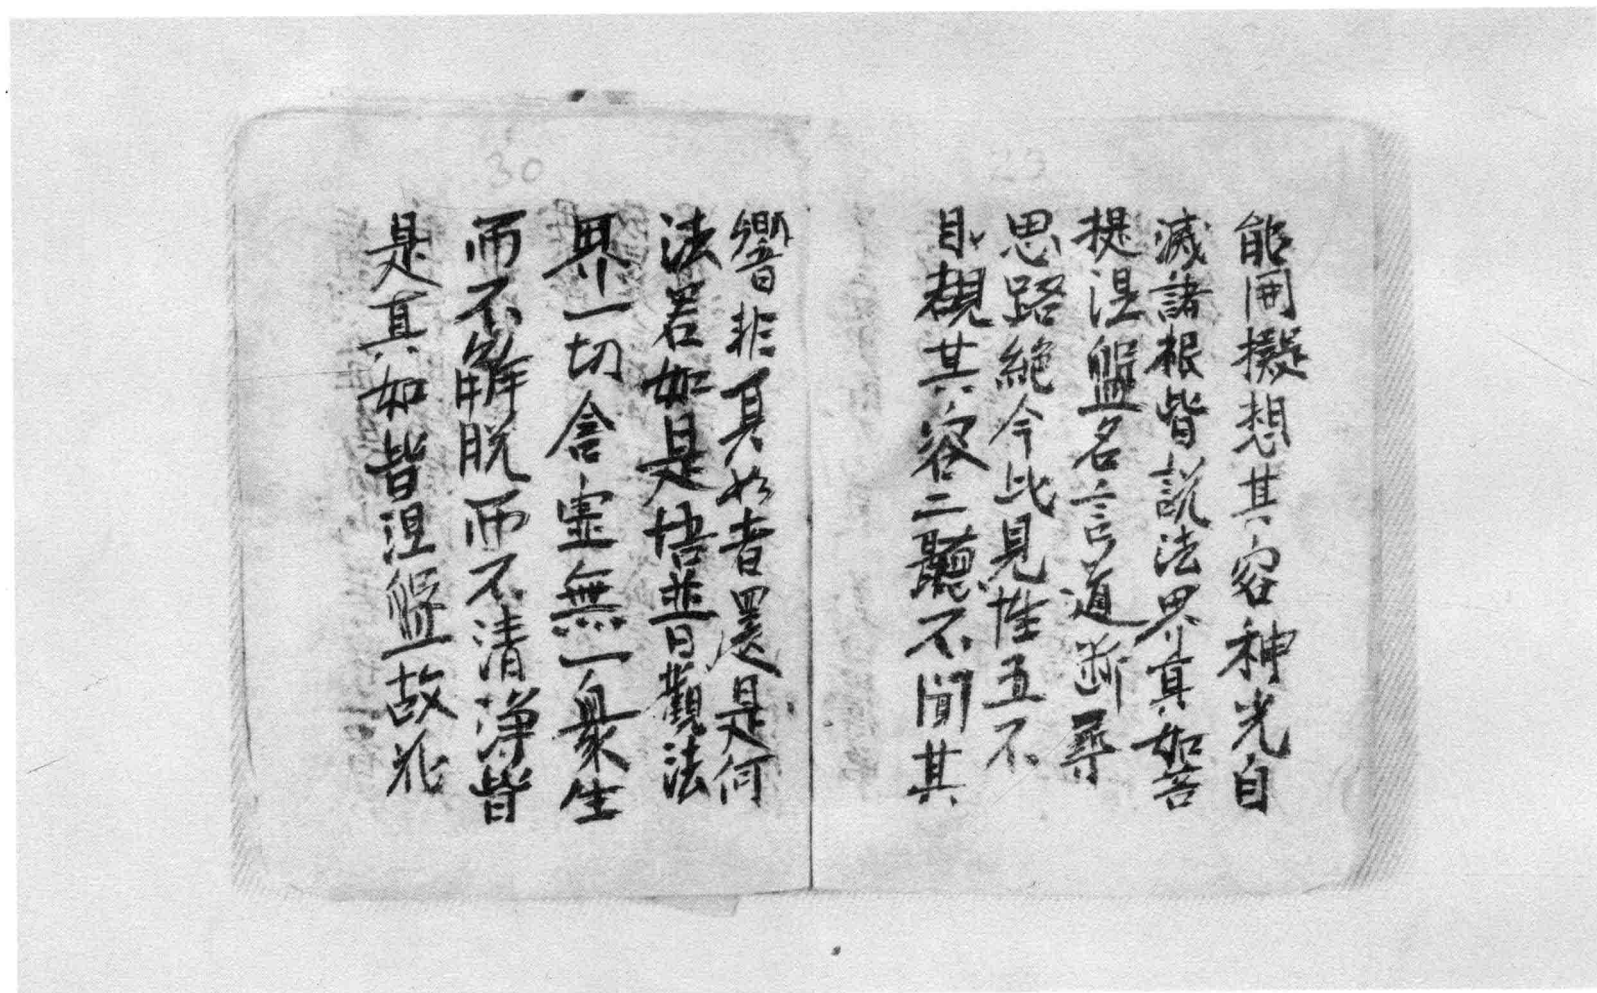 能開擬想其容神光自
滅諸根皆説法界真如菩
提涅盤名言道断尋
思路絶今此見性五不
目覩其容二聽不聞其
響非真如者還是何
法若如是悟並曰觀法
界一切含霊無一衆生
而不解脱而不清淨皆
是真如皆涅盤故花
30